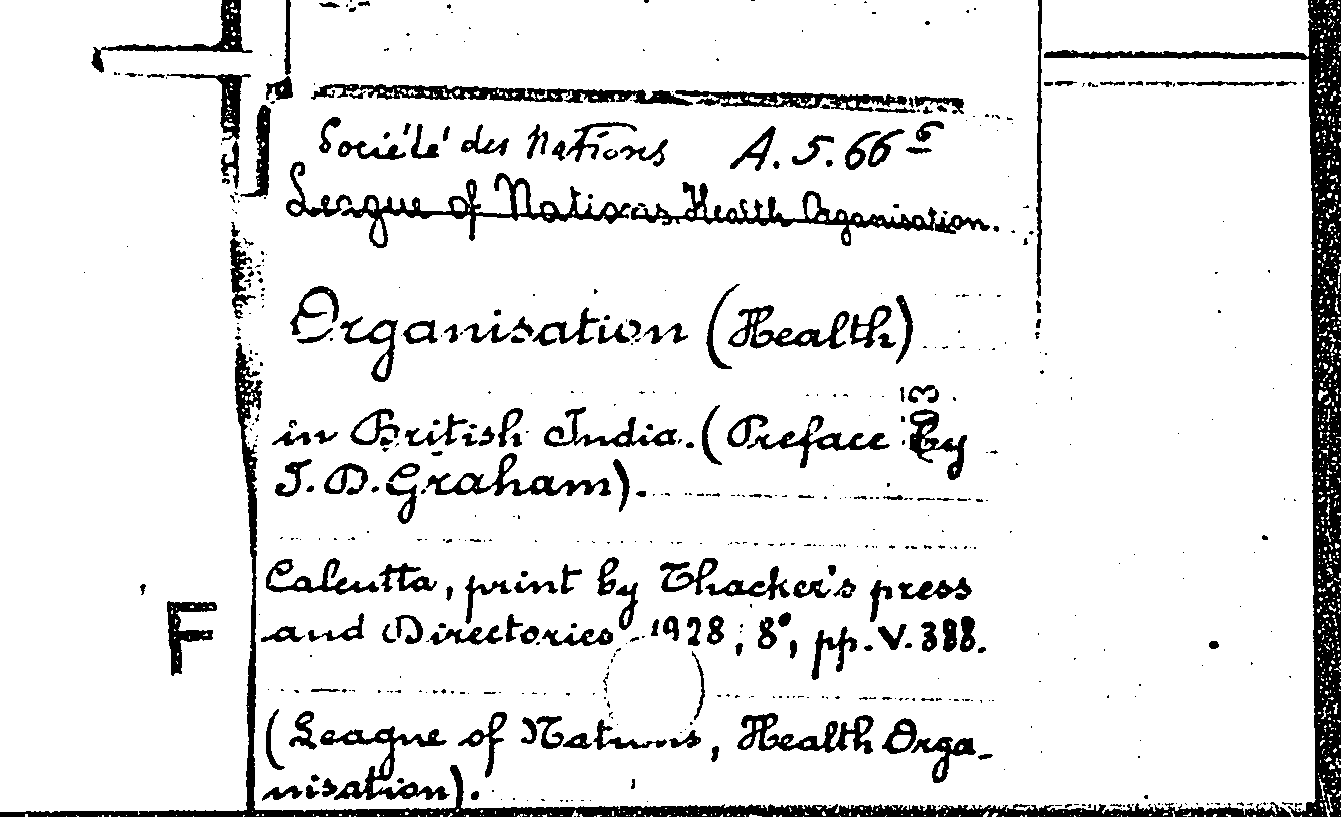 Société des Nations A.5.66⁶
League of Nations Health Organisation.
Organisation (Health)
in British India. (Preface by
J.D. Graham).
Calcutta, print by Thacker's press
and Directories 1928, 8°, pp. V. 388.
F
(League of Nations, Health Orga-
nisation).